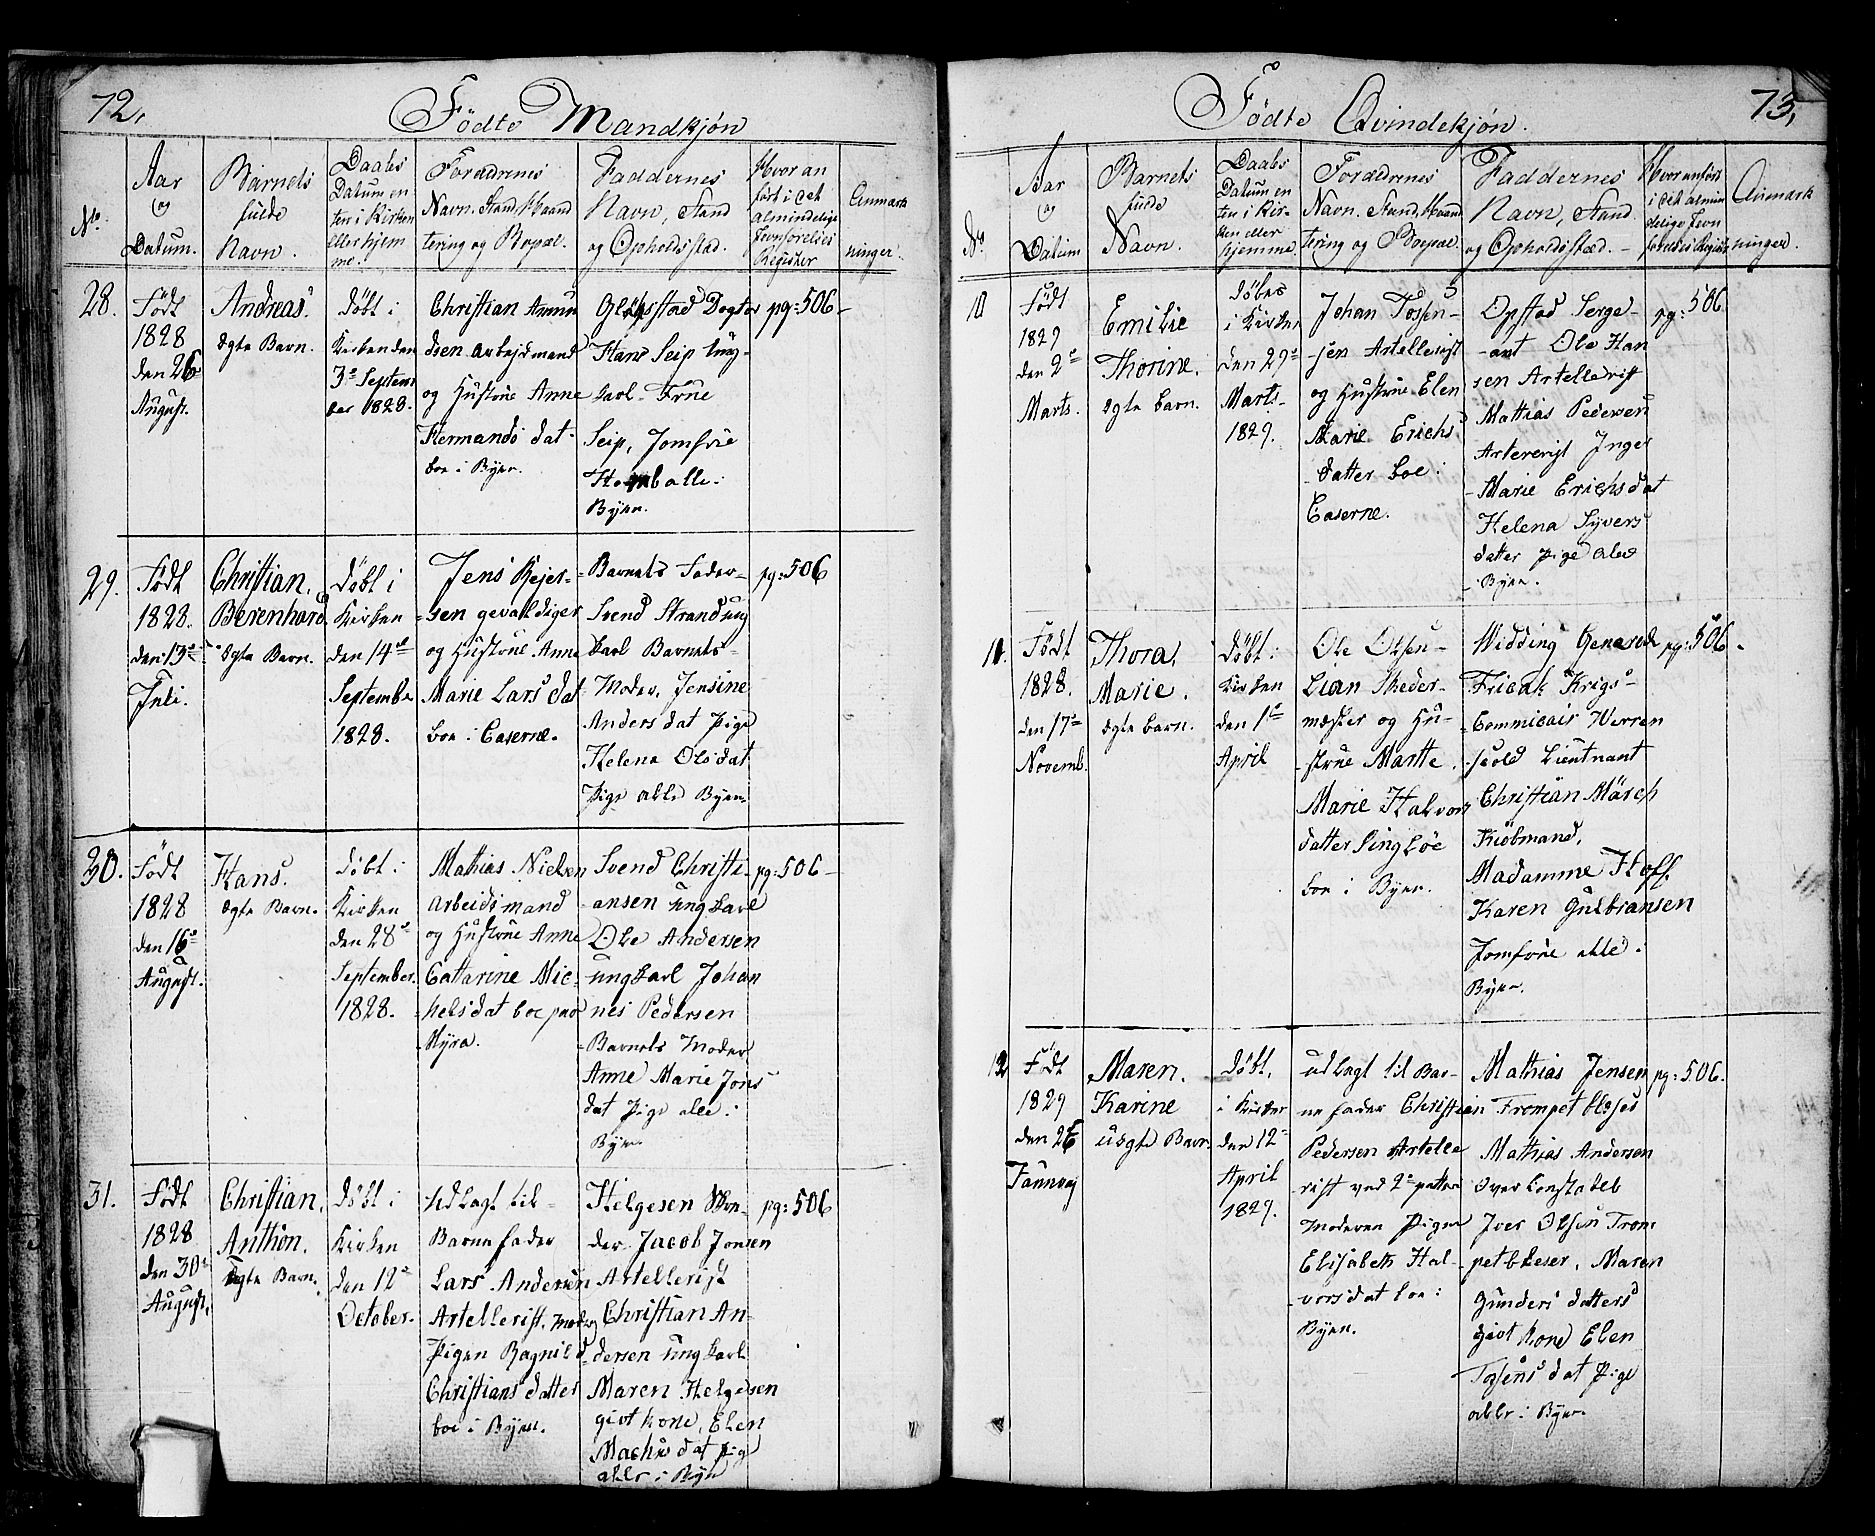 72.
Födte Mandkjøn
No.
Aar
og
Datum.
Barnets
fulde
Navn.
Daabs
Datum en
ten i Kirken
eller hjem
me.
Forældrenes
Navn. Stand, Haand
tering og Bopæl.
Faddernes
Navn, Stand
og Opholdsstæd.
Hvor an
ført i det
almindelige
Jevnførelses
Register
Anmærk
ninger.
28.
Født
1828
den 26
August.
Andreas.
Ægte Barn.
døbt i
Kirken den
3e Septem
ber 1828.
Christian Amun
dsen arbejdsmand
og Hustrue Anne
Hermands dat
boe i Byen.
Gløpstad Dogter
Hans Seip Ung-
karl. Frue
Seip, Jomfrue
Hornballe i
Byen.
pg: 506 -
29.
Født
1828.
den 13e
Juli.
Christian,
Berenhard
Ægte Barn.
døbt i
Kirken
den 14de
Septembr
1828.
Jens Rejer-
sen gevaldiger
og Hustrue Anne
Marie Lars dat
boe i Caserne.
Barnets Fader
Svend Strand ung
karl Barnets
Moder, Jensine
Anders dat Pige
Helena Ols dat
Pige alle Byen
pg: 506
30.
Født
1828
den 16e
August.
Hans.
Ægte Barn.
døbt i
Kirken
den 28e
September.
1828.
Mathias Nielsen
arbeidsmand
og Hustrue Anne
Cattarine Mic-
hels dat boe paa
Myra.
Svend Christi-
ansen ungkarl
Ole Andersen
ungkarl Johan
nes Pedersen
Barnets Moder
Anne Marie Jons
dat Pige alle i
Byen
pg: 506 -
31.
Født
1828
den 30e
August.
Christian,
Anthon.
Ægte Barn.
døbt i
Kirken
den 12e
October.
Udlagt til
Barnefader
Lars Andersen
Artellerist, Moder
Pigen Ragnild
Christians datter
boe i Byen.
Helgesen
der Jacob Jonsen
Artellerist
Christian An-
dersen ungkarl
Maren Helgesen
givt kone, Elen
Mathis dat Pige
alle i Byen
pg: 506
73.
Födte Qvindekjøn.
No
Aar
og
Datum
Barnets
fulde
Navn.
Daabs
Datum en
ten i Kir-
ken eller
hjemme.
Forældrenes
Navn. Stand, Haand
tering og Bopæl.
Faddernes
Navn, Stand
og Opholdsstæd. -
Hvor anført
i det almin
delige Jevn
førelses Register
Anmærk
ninger.
10
Født
1829
den 2e
Marts.
Emilie
Thorine.
Ægte barn.
døbes
i Kirken
den 29e
Marts
1829.
Johan Tosten-
sen Artellerist
og Hustrue Elen
Marie Erichs
datter boe i
Caserne.
Opstad Serge-
-ant Ole Han
sen Artellerist
Mattias Pedersen
Artererist Inger
Marie Erichs dat
Helena Syvers
datter Pige alle
i Byen.
pg: 506
11.
Født
1828.
den 17e
Novemb.
Thora,
Marie.
Ægte barn.
døbt i
Kirken
den 1e
April
Ole Olsen
Lian Skeder-
mæster og Hu-
strue Martte
Marie Halvors
datter Singløe
boe i Byen.
Widding General
Fricak Krigs-
Commicair Werren
skold Lieutnant
Christian Mörch
Kiöbmand,
Madamme Hoff.
Karen Gulbransen
Jomfrue alle i
Byen.
pg: 506 -
12
Født
1829
den 26
Januarj
Maren.
Karine
uægte Barn.
døbt,
i Kirken
den 12e
April
1829.
udlagt til Bar-
nefader Christian
Pedersen Artelle
rist ved 2e batteri
Moderen Pigen
Elisabeth Hal-
vors dat boe i
Byen.
Mathias Jensen
Trompetblæser
Mathias Andersen
Over Constabel
Iver Olsen Trom
petblæser, Maren
Gunders datters
givt kone Elen
dat Pige
alle i Byen.
pg: 506.